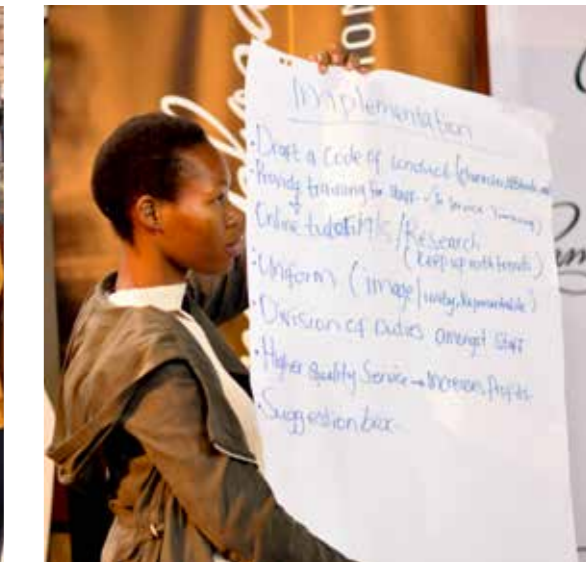 Implementation
• Draft a Code of Conduct (
• Provide training for staff
Online tutorials / Research
(keep up with trends)
• Uniform (image / unity,
• Division of Duties amongst staff
• Higher quality Service → Increases Profits
• Suggestion box